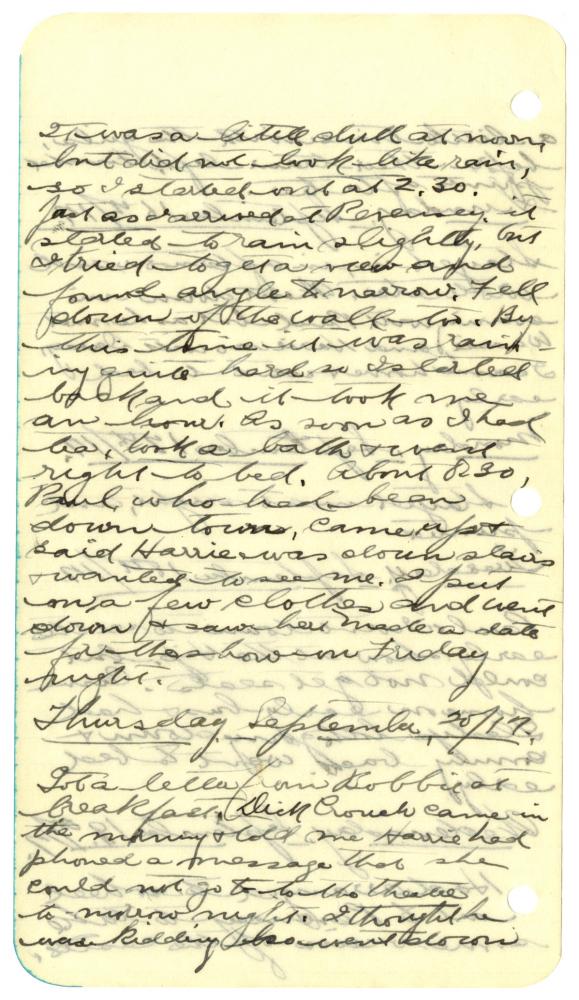 It was a little dull at noon,
but did not look like rain,
so I started out at 2.30.
Just as I arrived at Pevensey, it
started to rain slightly, but
I tried to get a view and
found angle to narrow. Fell
down off the wall too. By
this time it was rain-
ing quite hard so I started
back and it took me
an hour. As soon as I had
tea, took a bath & went
right to bed. About 8.30,
Paul, who had been
down town, came up &
said Harrie was down stairs
& wanted to see me. I put
on a few clothes and went
down & saw her. Made a date
for the show on Friday
night.
Thursday September 20/17.
Got a letter from Bobbie at
breakfast. Dick Crouch came in
the morning & told me Harrie had
phoned a message that she
could not go to the theatre
to-morrow night. I thought he
was kidding also went down